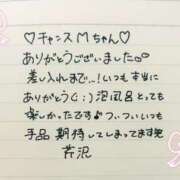 ♡チャンスMちゃん♡
ありがとうございました
差し入れまで…!いつも本当に
ありがとう(:)泡風呂とても
楽しかったです♪ついついお
手品期待してしまってます
芹沢